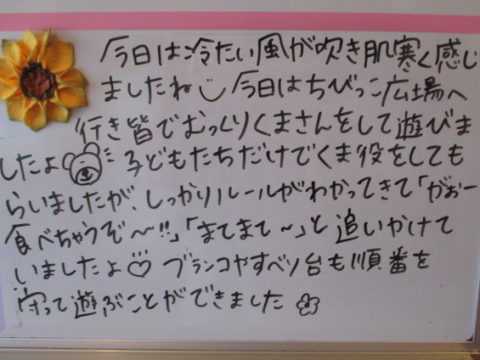 今日は冷たい風が吹き肌寒く感じ
ましたね 今日はちびっこ広場へ
行き皆でむっくりくまさんをして遊びま
したよ 子どもたちだけでくま役をしても
らいましたが、しっかりルールがわかってきて「がおー
食べちゃうぞ〜!!」「まてまて〜」と追いかけて
いましたよ♡ ブランコやすべり台も順番を
守って遊ぶことができました